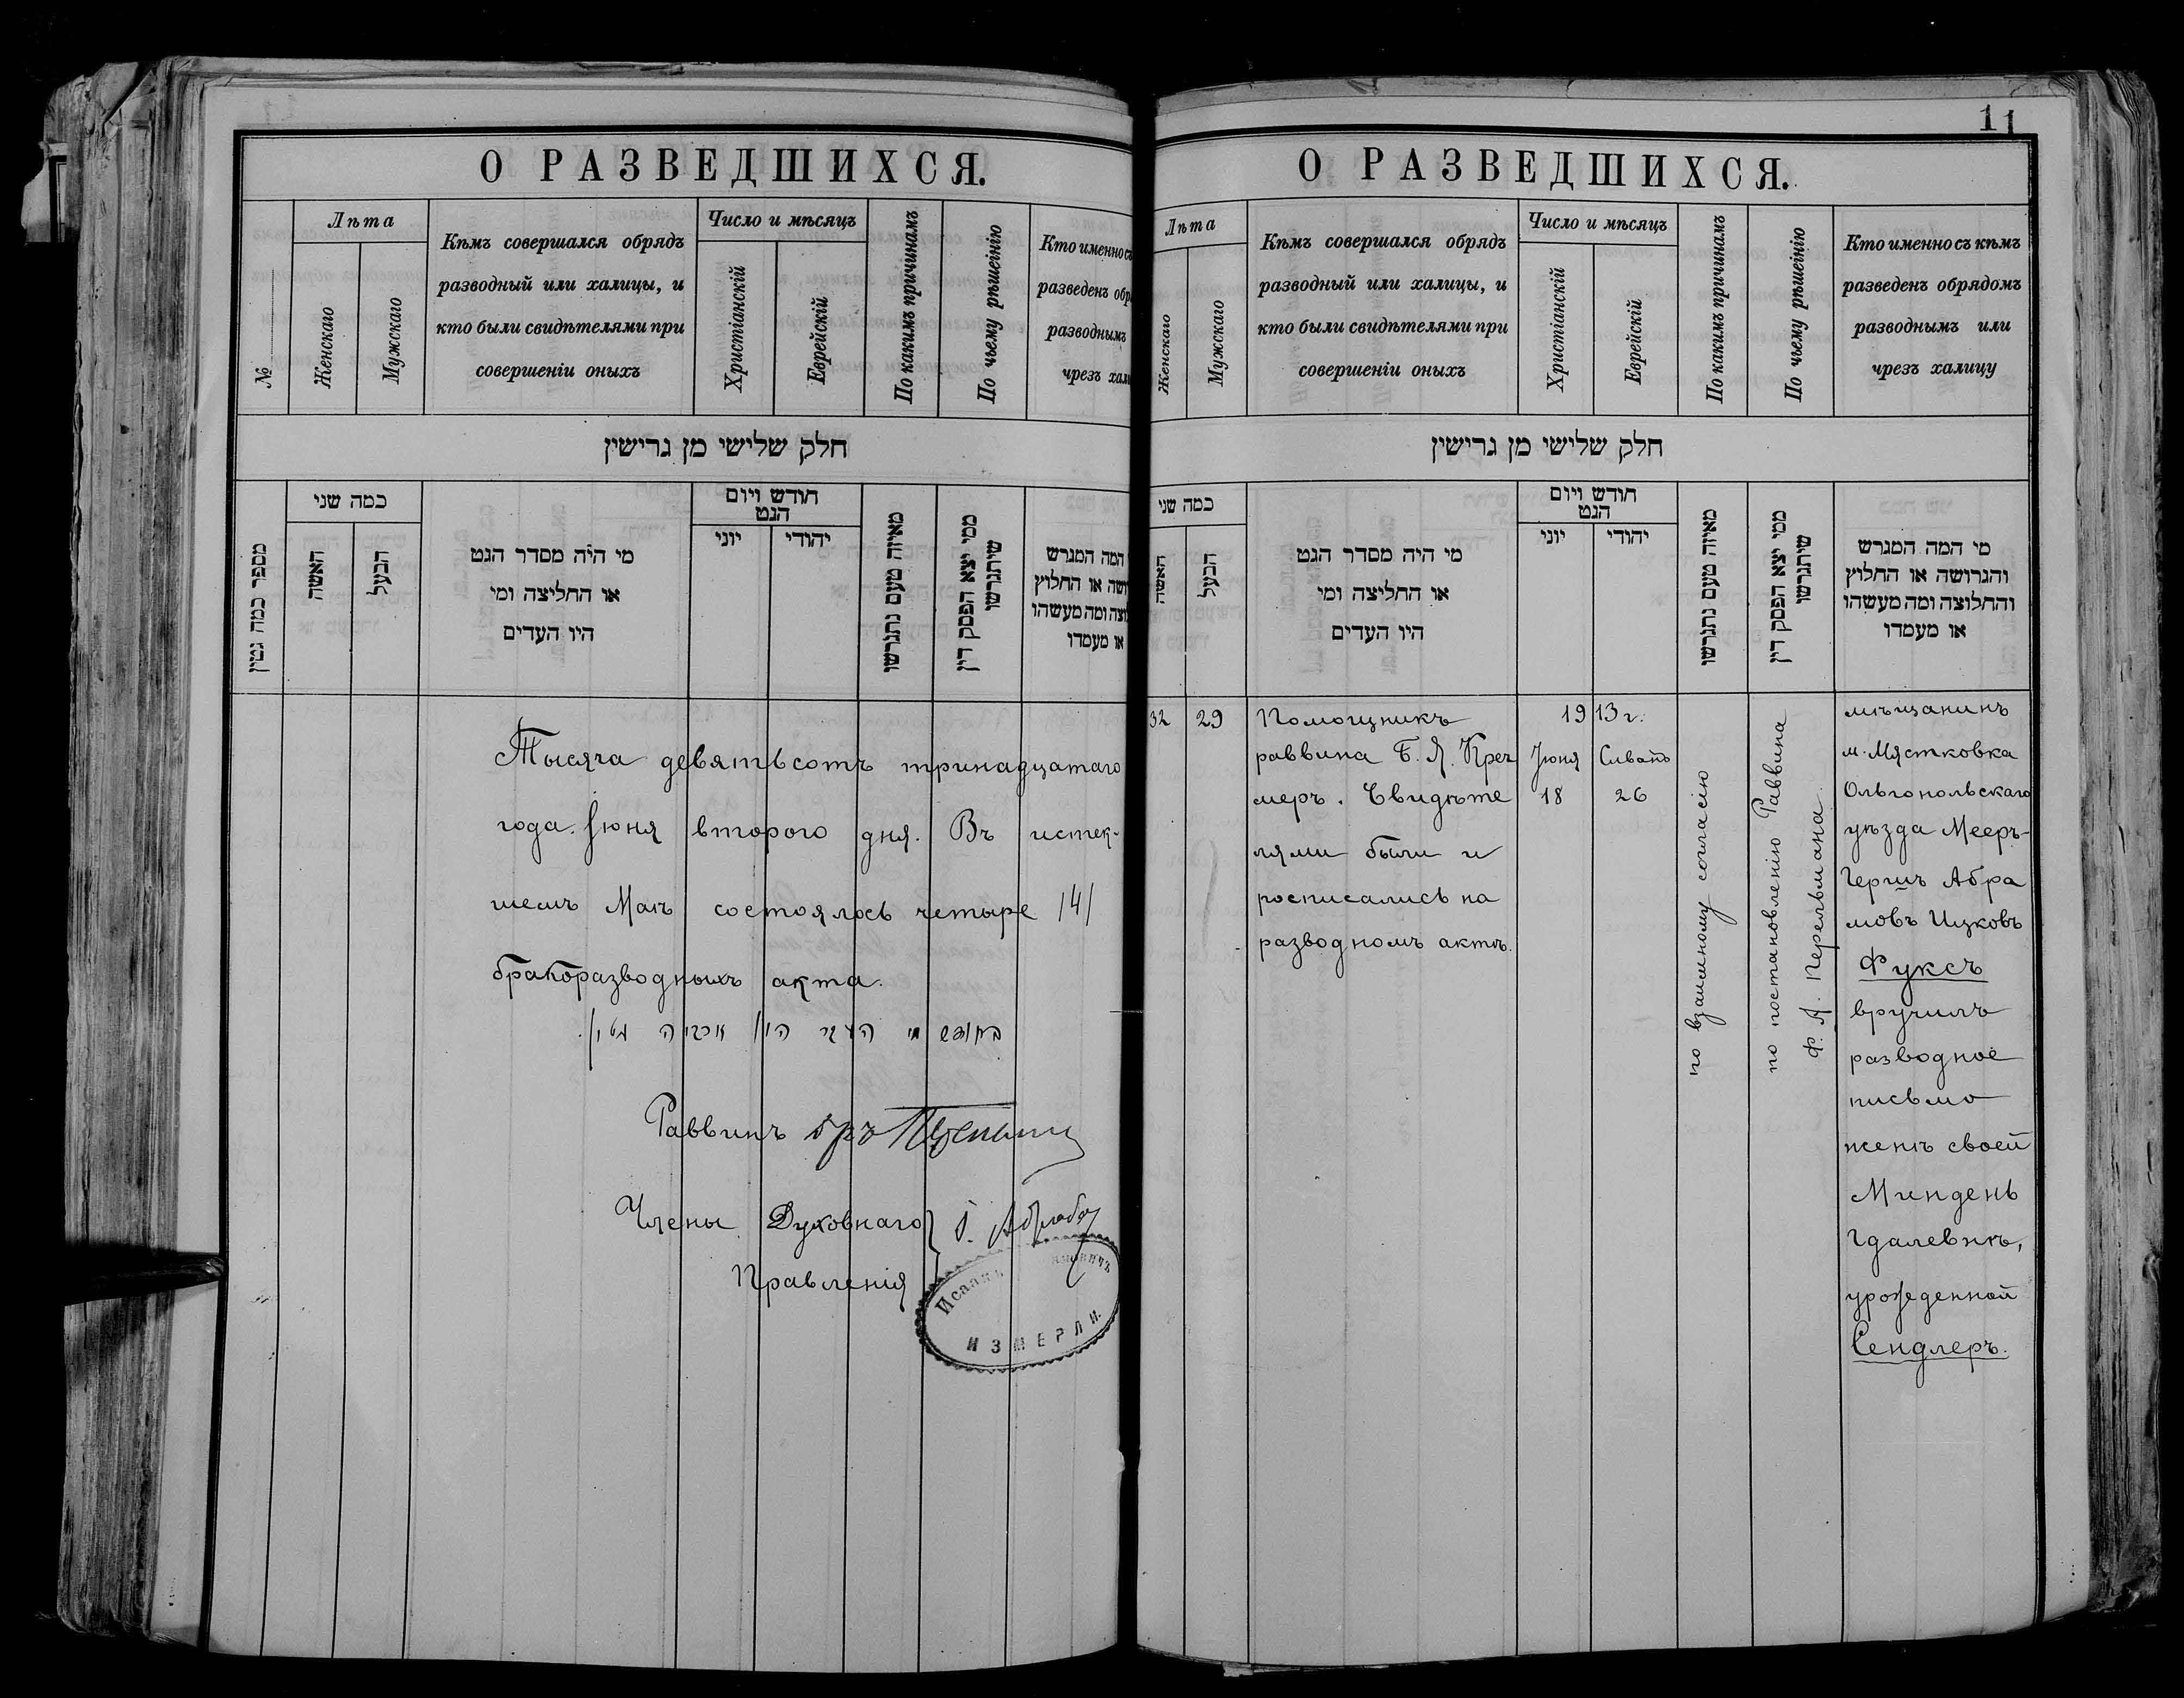 О РАЗВЕДШИХСЯ.
№
Лѣта
Женскаго
Мужскаго
Кѣмъ совершался обрядъ
разводный или халицы, и
кто были свидѣтелями при
совершеніи оныхъ
Число и мѣсяцъ
Христіанскій
Еврейскій
По какимъ причинамъ
По чьему рѣшенію
Кто именно съ
разведенъ обр
разводнымъ
чрезъ хал
חלק שלישי מן גרישין
מספר כמה גטין
כמה שני
האשה
הבעל
מי היה מסדר הגט
או החליצה ומי
היו העדים
חודש ויום
הגט
יוני
יהודי
מאיזה טעם נתגרשו
ממי יצא הפסק דין
שיתגרשו
המה המגרש
ושה או החלוץ
וצה ומה מעשהו
או מעמדו
Тысяча девятьсотъ тринадцатаго
года Іюня второго дня. Въ истек-
шемъ Маѣ состоялось четыре /4/
бракоразводныхъ акта.
Раввинъ
Члены Духовнаго
Правленія
Исаакъ
ИЗМЕРЛИ.
11
О РАЗВЕДШИХСЯ.
Лѣта
Женскаго
Мужскаго
Кѣмъ совершался обрядъ
разводный или халицы, и
кто были свидѣтелями при
совершеніи оныхъ
Число и мѣсяцъ
Христіанскій
Еврейскій
По какимъ причинамъ
По чьему рѣшенію
Кто именно съ кѣмъ
разведенъ обрядомъ
разводнымъ или
чрезъ халицу
חלק שלישי מן גרישין
כמה שני
האשה
הבעל
מי היה מסדר הגט
או החליצה ומי
היו העדים
חודש ויום
הגט
יוני
יהודי
מאיזה טעם נתגרשו
ממי יצא הפסק דין
שיתגרשו
מי המה המגרש
והגרושה או החלוץ
והחלוצה ומה מעשהו
או מעמדו
32
29
Помощникъ
раввина Б. Я. Креч
меръ. Свидѣте
лями были и
росписались на
разводномъ актѣ.
1913 г.
Іюня Сиванъ
18 26
по взаимному согласію
по постановленію Раввина
Ф. А. Перельмана
мѣщанинъ
м. Мястковка
Ольгопольскаго
уѣзда Мееръ-
Гершъ Абра
мовъ Ицковъ
Фуксъ
вручилъ
разводное
письмо
женѣ своей
Миндень
Гдалевнѣ,
урожденной
Сендлеръ.